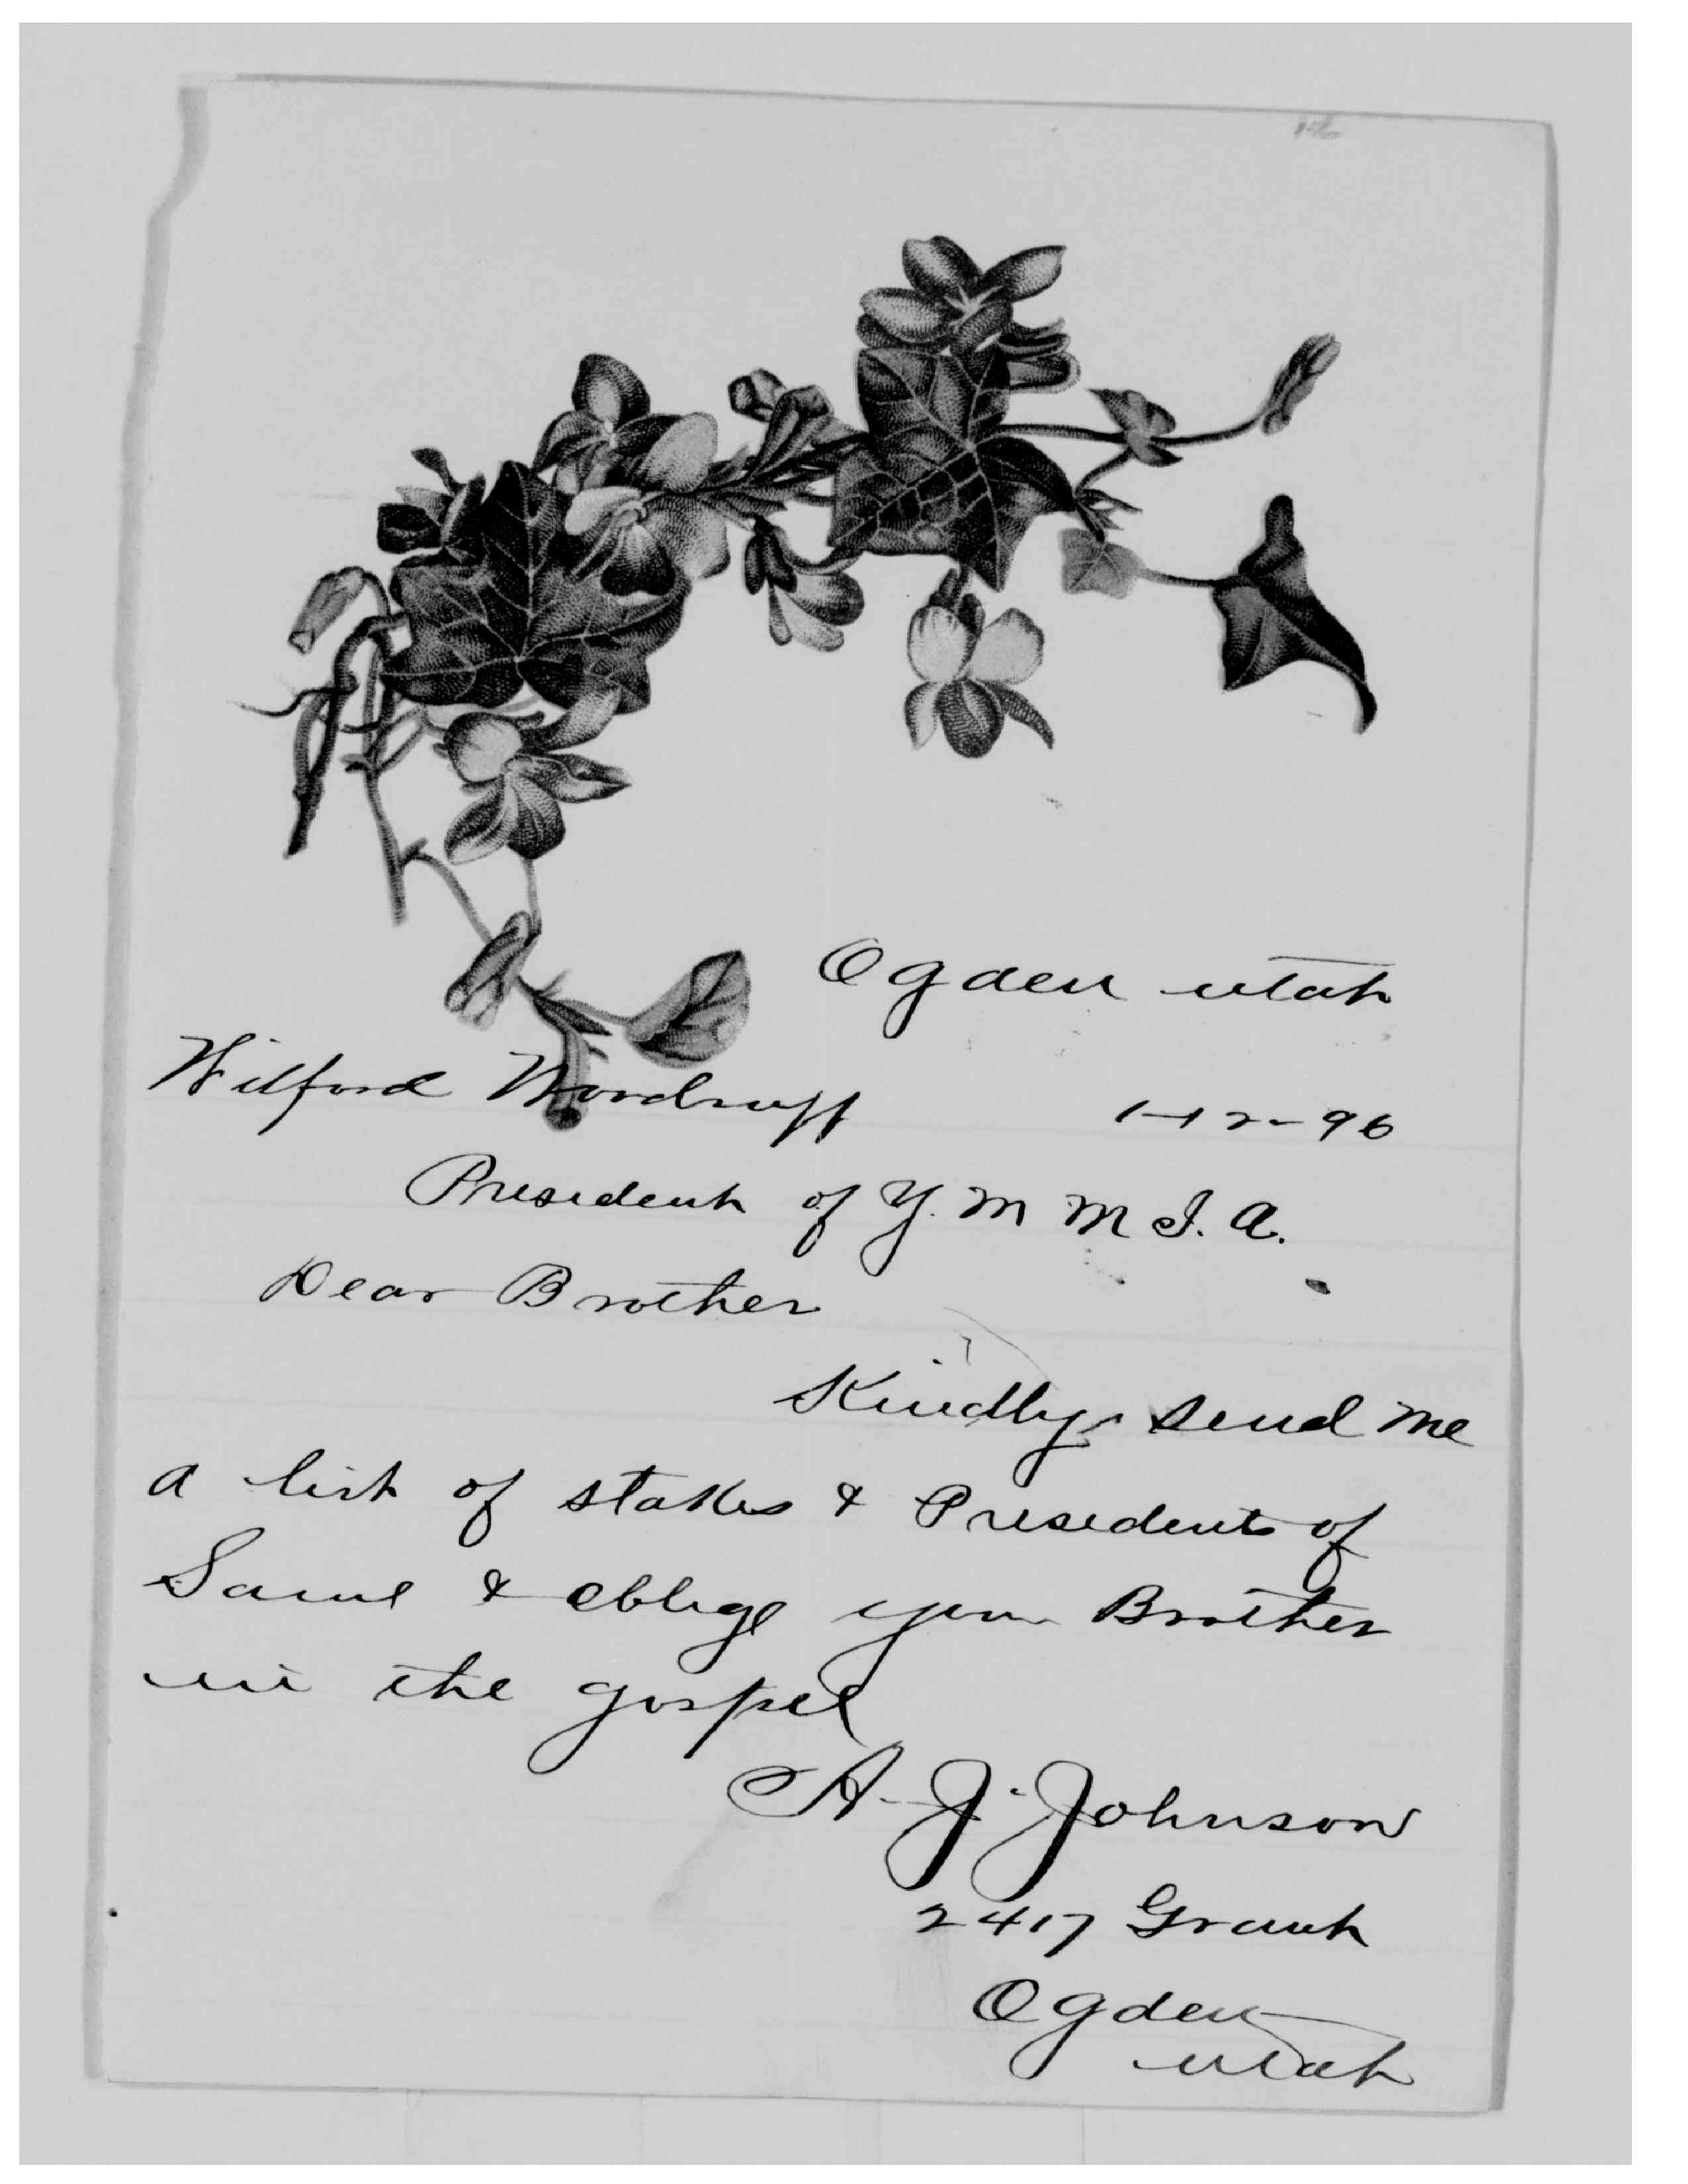 Ogden Utah
Wilford Woodruff 1-12-96
President of Y. M M I. A.
Dear Brother
Kindly send me
a list of stakes & Presidents of
Same & oblige your Brother
in the gospel
A. J. Johnson
2417 Grant
Ogden
Utah